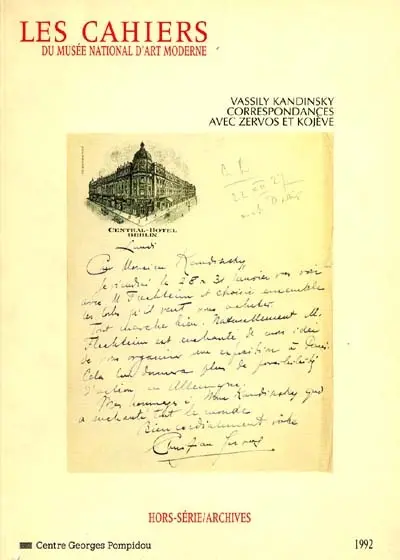 LES CAHIERS
DU MUSÉE NATIONAL D'ART MODERNE
VASSILY KANDINSKY
CORRESPONDANCES
AVEC ZERVOS ET KOJÈVE
CENTRAL-HOTEL
BERLIN
Lundi
Cher Monsieur Kandinsky
Je viendrai le 28 31 Janvier vous voir
avec M. Flechtheim et choisir ensemble
les toiles qu'il veut vous acheter.
Tout marche bien. Naturellement M.
Flechtheim est enchanté de mon idée
de vous organiser une exposition à Paris.
Cela lui donnera plus de possibilités
d'action en Allemagne.
Mes hommages à Mme Kandinsky qui
a enchanté tout le monde
Bien cordialement votre
Christian Zervos
HORS-SÉRIE/ARCHIVES
Centre Georges Pompidou
1992